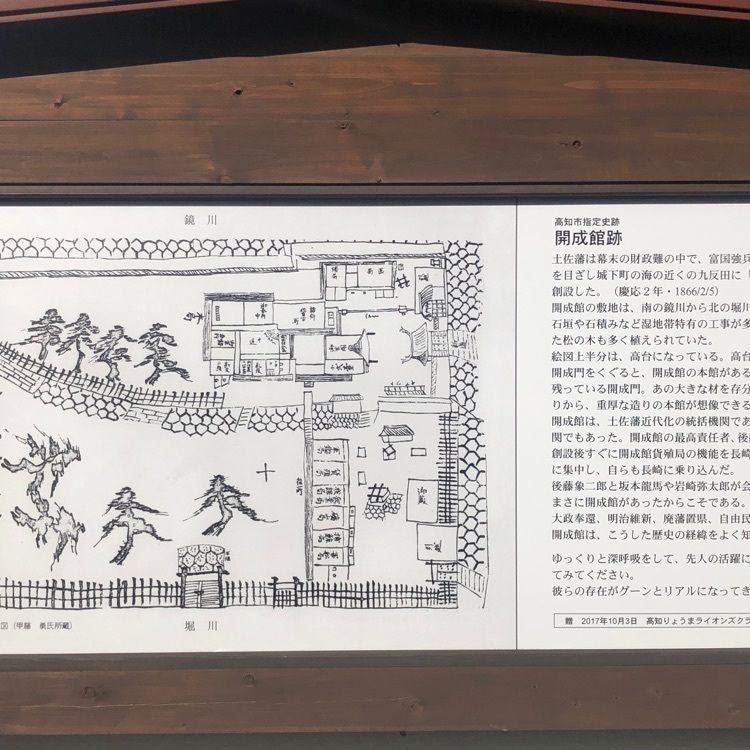 鏡川
堀川
図（甲藤　勇氏所蔵）
高知市指定史跡
開成館跡
土佐藩は幕末の財政難の中で、富国強兵
を目ざし城下町の海の近くの九反田に「
創設した。（慶応２年・1866/2/5）
開成館の敷地は、南の鏡川から北の堀川
石垣や石積みなど湿地帯特有の工事が多
た松の木も多く植えられていた。
絵図上半分は、高台になっている。高台
開成門をくぐると、開成館の本館がある
残っている開成門。あの大きな材を存分
りから、重厚な造りの本館が想像できる
開成館は、土佐藩近代化の統括機関であ
関でもあった。開成館の最高責任者、後
創設後すぐに開成館貨殖局の機能を長崎
に集中し、自らも長崎に乗り込んだ。
後藤象二郎と坂本龍馬や岩崎弥太郎が会
まさに開成館があったからこそである。
大政奉還、明治維新、廃藩置県、自由民
開成館は、こうした歴史の経緯をよく知
ゆっくりと深呼吸をして、先人の活躍に
てみてください。
彼らの存在がグーンとリアルになってき
贈　2017年10月3日　高知りょうまライオンズクラ